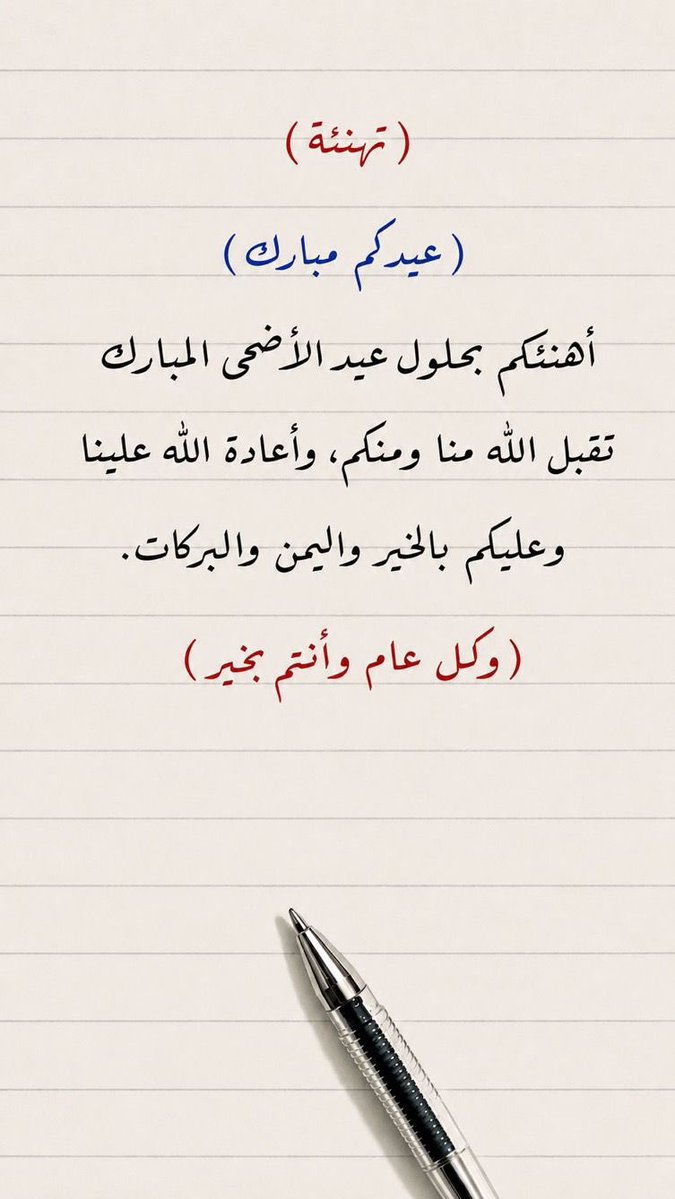 ( تهنئة )
( عيدكم مبارك )
أهنئكم بحلول عيد الأضحى المبارك
تقبل الله منا ومنكم، وأعادة الله علينا
وعليكم بالخير واليمن والبركات.
( وكل عام وأنتم بخير )